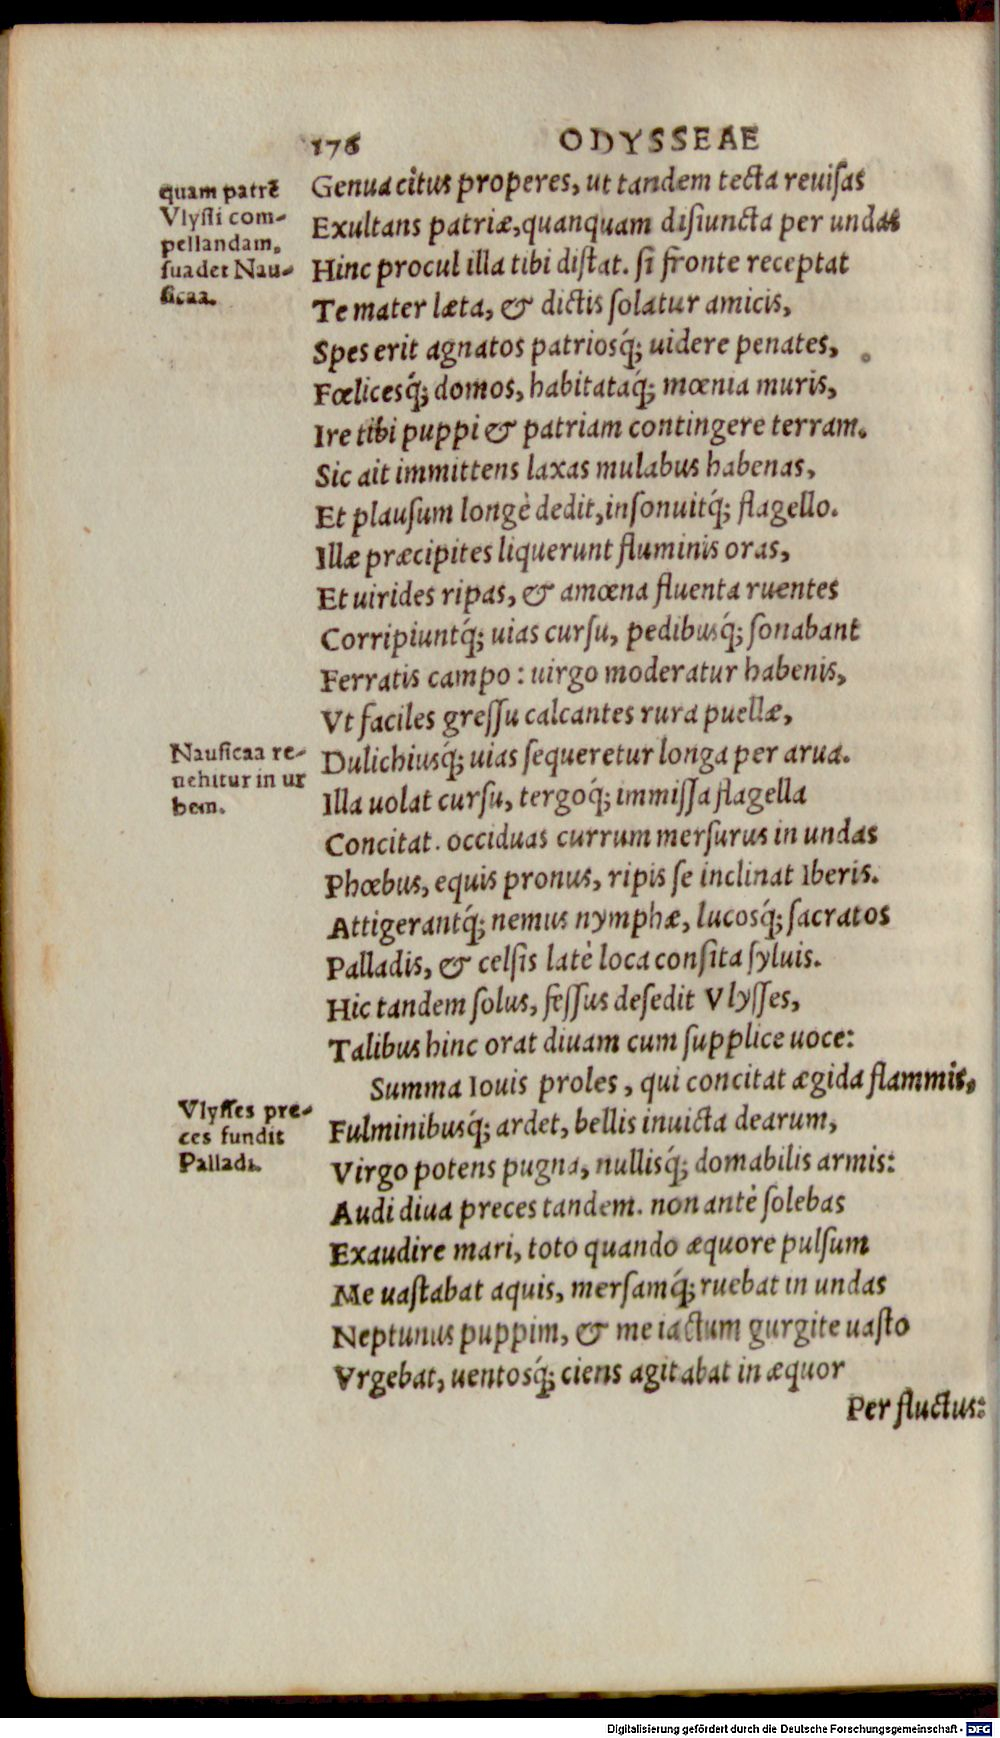 176 ODYSSEAE
quam patrẽ
Vlyssi com-
pellandam,
suadet Nau-
sicaa.
Genua citus properes, ut tandem tecta reuisas
Exultans patriæ, quanquam disiuncta per undas
Hinc procul illa tibi distat. si fronte receptat
Te mater læta, & dictis solatur amicis,
Spes erit agnatos patriosq́; uidere penates,
Fœlicesq́; domos, habitataq́; mœnia muris,
Ire tibi puppi & patriam contingere terram.
Sic ait immittens laxas mulabus habenas,
Et plausum longè dedit, insonuitq́; flagello.
Illæ præcipites liquerunt fluminis oras,
Et uirides ripas, & amœna fluenta ruentes
Corripiuntq́; uias cursu, pedibusq́; sonabant
Ferratis campo: uirgo moderatur habenis,
Vt faciles gressu calcantes rura puellæ,
Nausicaa re-
uehitur in ur
bem.
Dulichiusq́; uias sequeretur longa per arua.
Illa uolat cursu, tergoq́; immissa flagella
Concitat. occiduas currum mersurus in undas
Phœbus, equis pronus, ripis se inclinat Iberis.
Attigerantq́; nemus nymphæ, lucosq́; sacratos
Palladis, & celsis latè loca consita syluis.
Hic tandem solus, fessus desedit Vlysses,
Talibus hinc orat diuam cum supplice uoce:
Summa Iouis proles, qui concitat ægida flammis,
Vlysses pre-
ces fundit
Palladi.
Fulminibusq́; ardet, bellis inuicta dearum,
Virgo potens pugna, nullisq́; domabilis armis:
Audi diua preces tandem. non antè solebas
Exaudire mari, toto quando æquore pulsum
Me uastabat aquis, mersamq́; ruebat in undas
Neptunus puppim, & me iactum gurgite uasto
Vrgebat, uentosq́; ciens agitabat in æquor
Per fluctus:
Digitalisierung gefördert durch die Deutsche Forschungsgemeinschaft - DFG